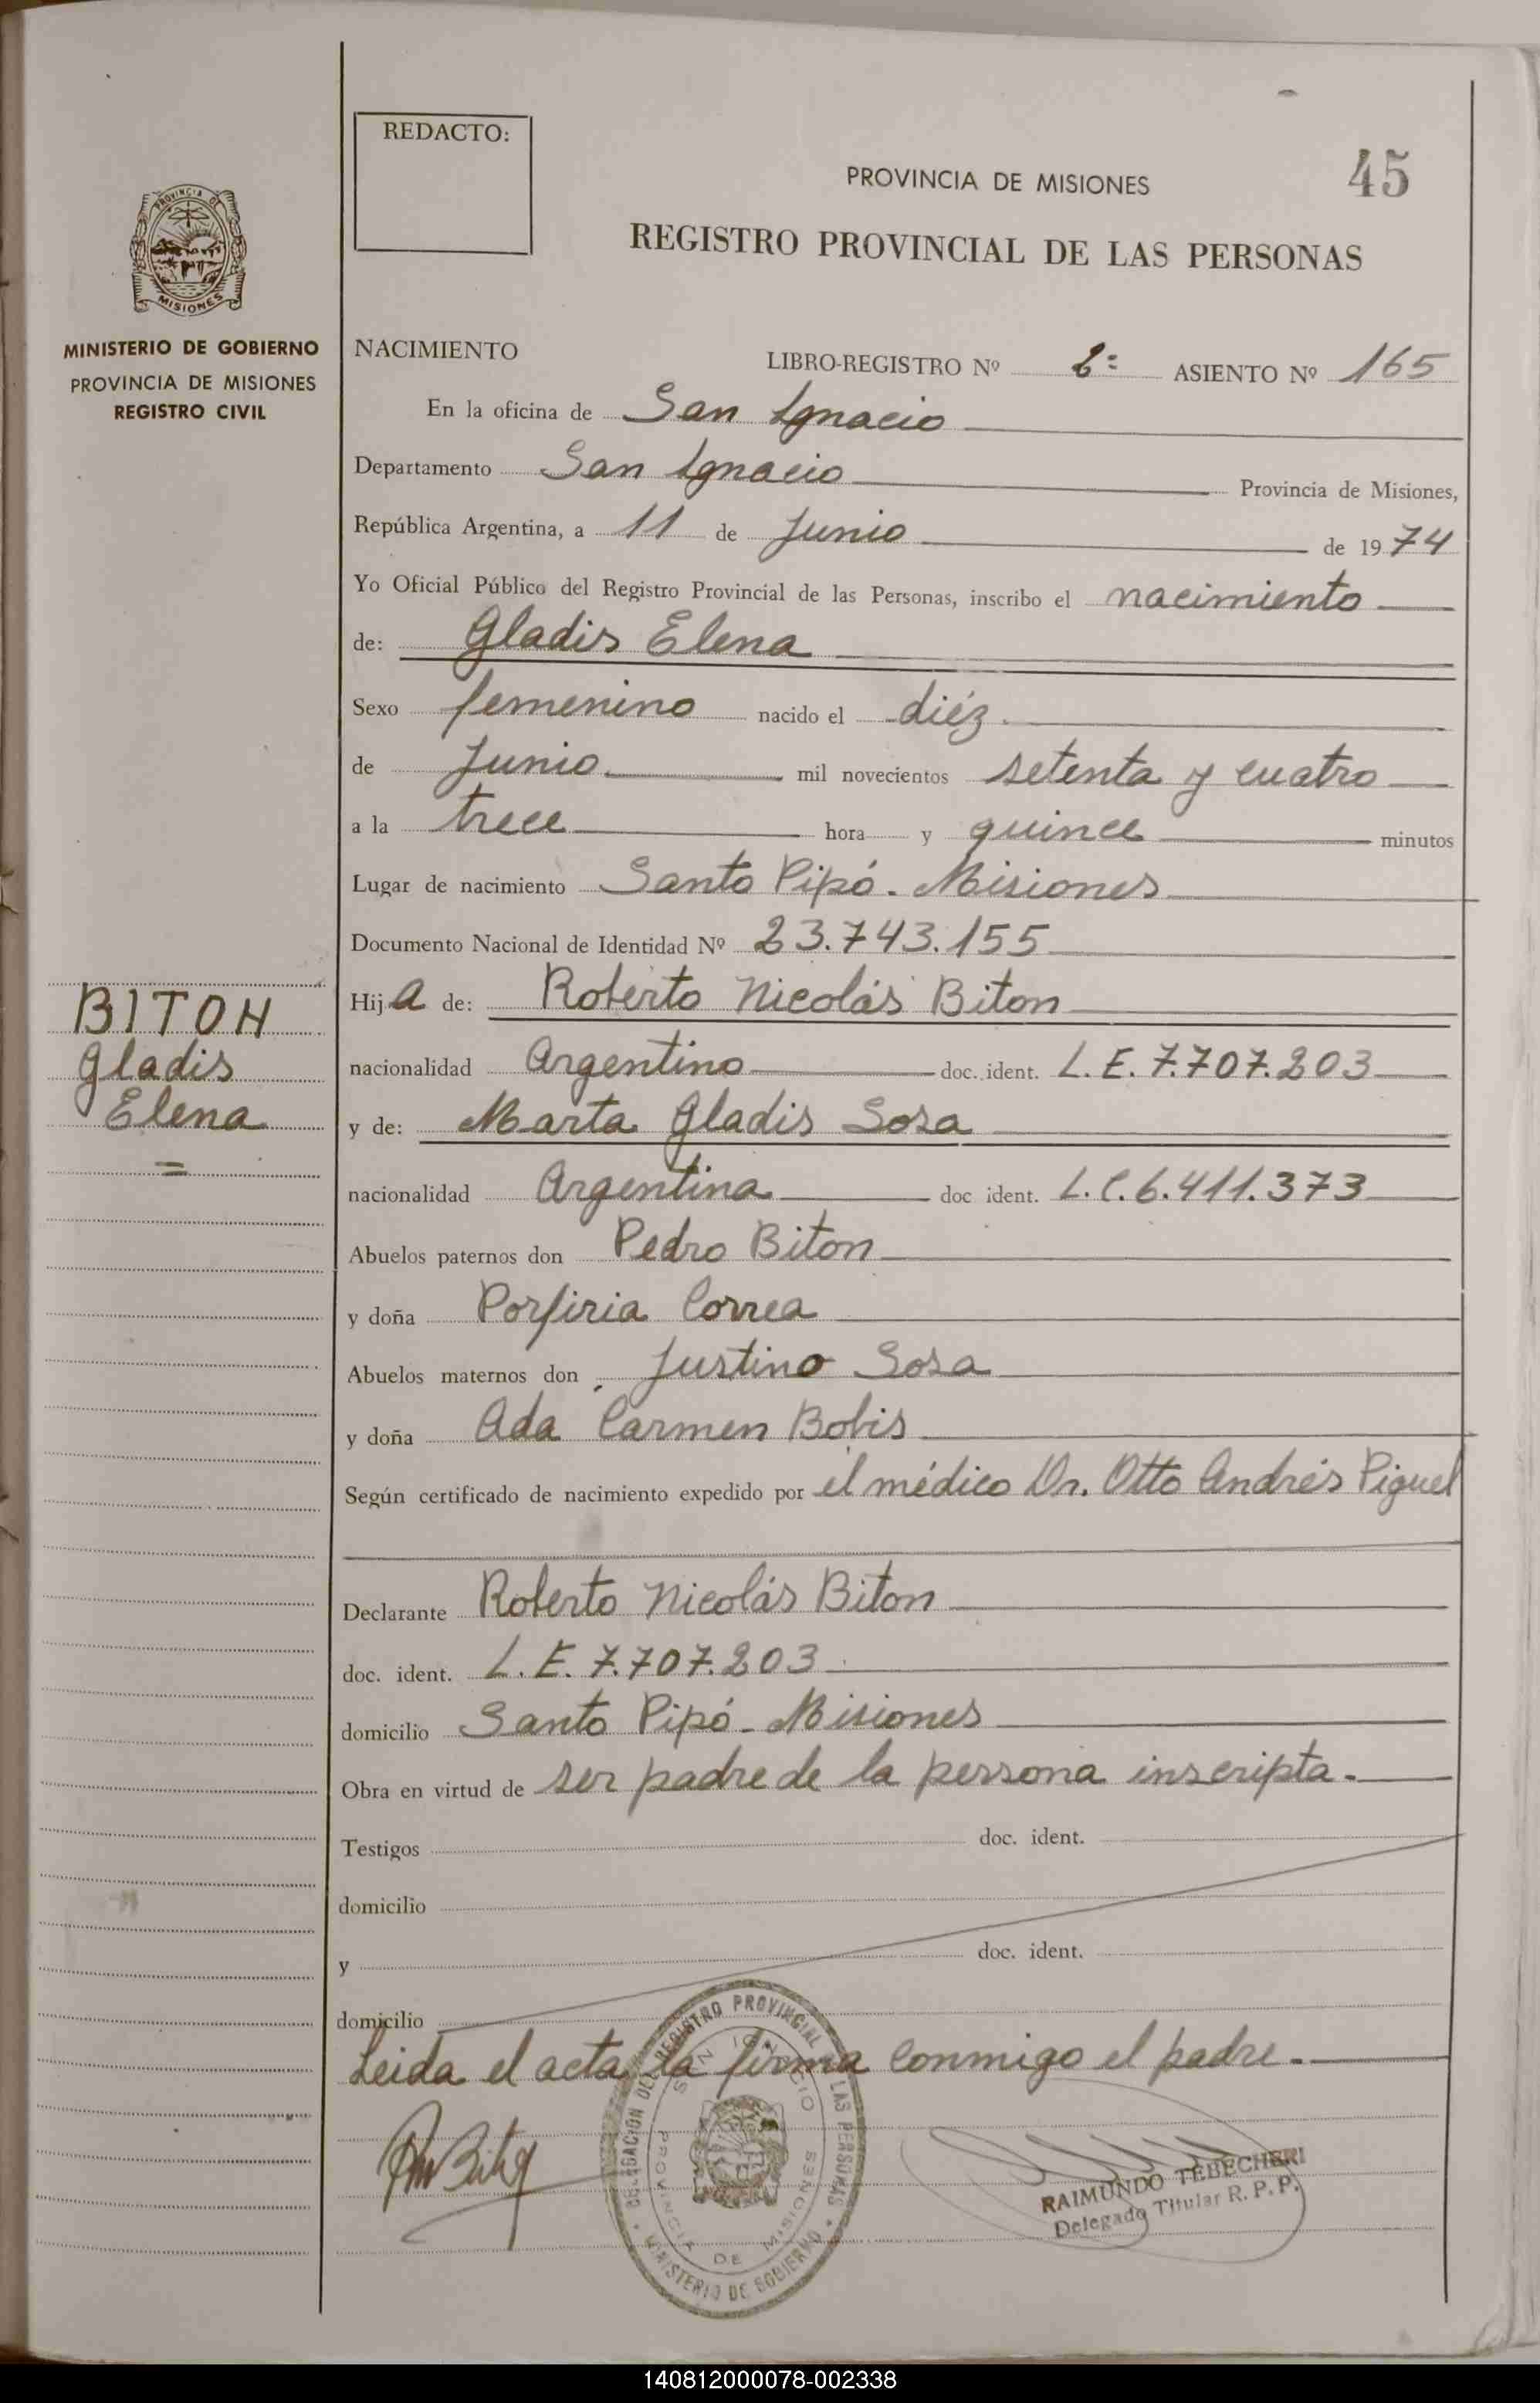 REDACTO:
PROVINCIA DE MISIONES
45
REGISTRO PROVINCIAL DE LAS PERSONAS
PROVINCIA DE
MISIONES
MINISTERIO DE GOBIERNO
PROVINCIA DE MISIONES
REGISTRO CIVIL
NACIMIENTO LIBRO-REGISTRO Nº 2º ASIENTO Nº 165
En la oficina de San Ignacio
Departamento San Ignacio Provincia de Misiones,
República Argentina, a 11 de Junio de 1974
Yo Oficial Público del Registro Provincial de las Personas, inscribo el nacimiento
de: Gladis Elena
Sexo femenino nacido el diéz.
de Junio mil novecientos setenta y cuatro
a la trece hora y quince minutos
Lugar de nacimiento Santo Pipó - Misiones
Documento Nacional de Identidad Nº 23.743.155
BITON
Gladis
Elena
=
Hija de: Roberto Nicolás Biton
nacionalidad Argentino doc. ident. L.E. 7.707.203
y de: Marta Gladis Sosa
nacionalidad Argentina doc ident. L.C. 6.411.373
Abuelos paternos don Pedro Biton
y doña Porfiria Correa
Abuelos maternos don Justino Sosa
y doña Ada Carmen Bobis
Según certificado de nacimiento expedido por el médico Dr. Otto Andrés Piguel
Declarante Roberto Nicolás Biton
doc. ident. L.E. 7.707.203
domicilio Santo Pipó - Misiones
Obra en virtud de ser padre de la persona inscripta.
Testigos doc. ident.
domicilio
y doc. ident.
domicilio
Leida el acta, la firma conmigo el padre.
DELEGACION DEL REGISTRO PROVINCIAL DE LAS PERSONAS
MINISTERIO DE GOBIERNO
SAN IGNACIO
PROVINCIA DE MISIONES
RAIMUNDO TEBECHERI
Delegado Titular R. P. P.
140812000078-002338